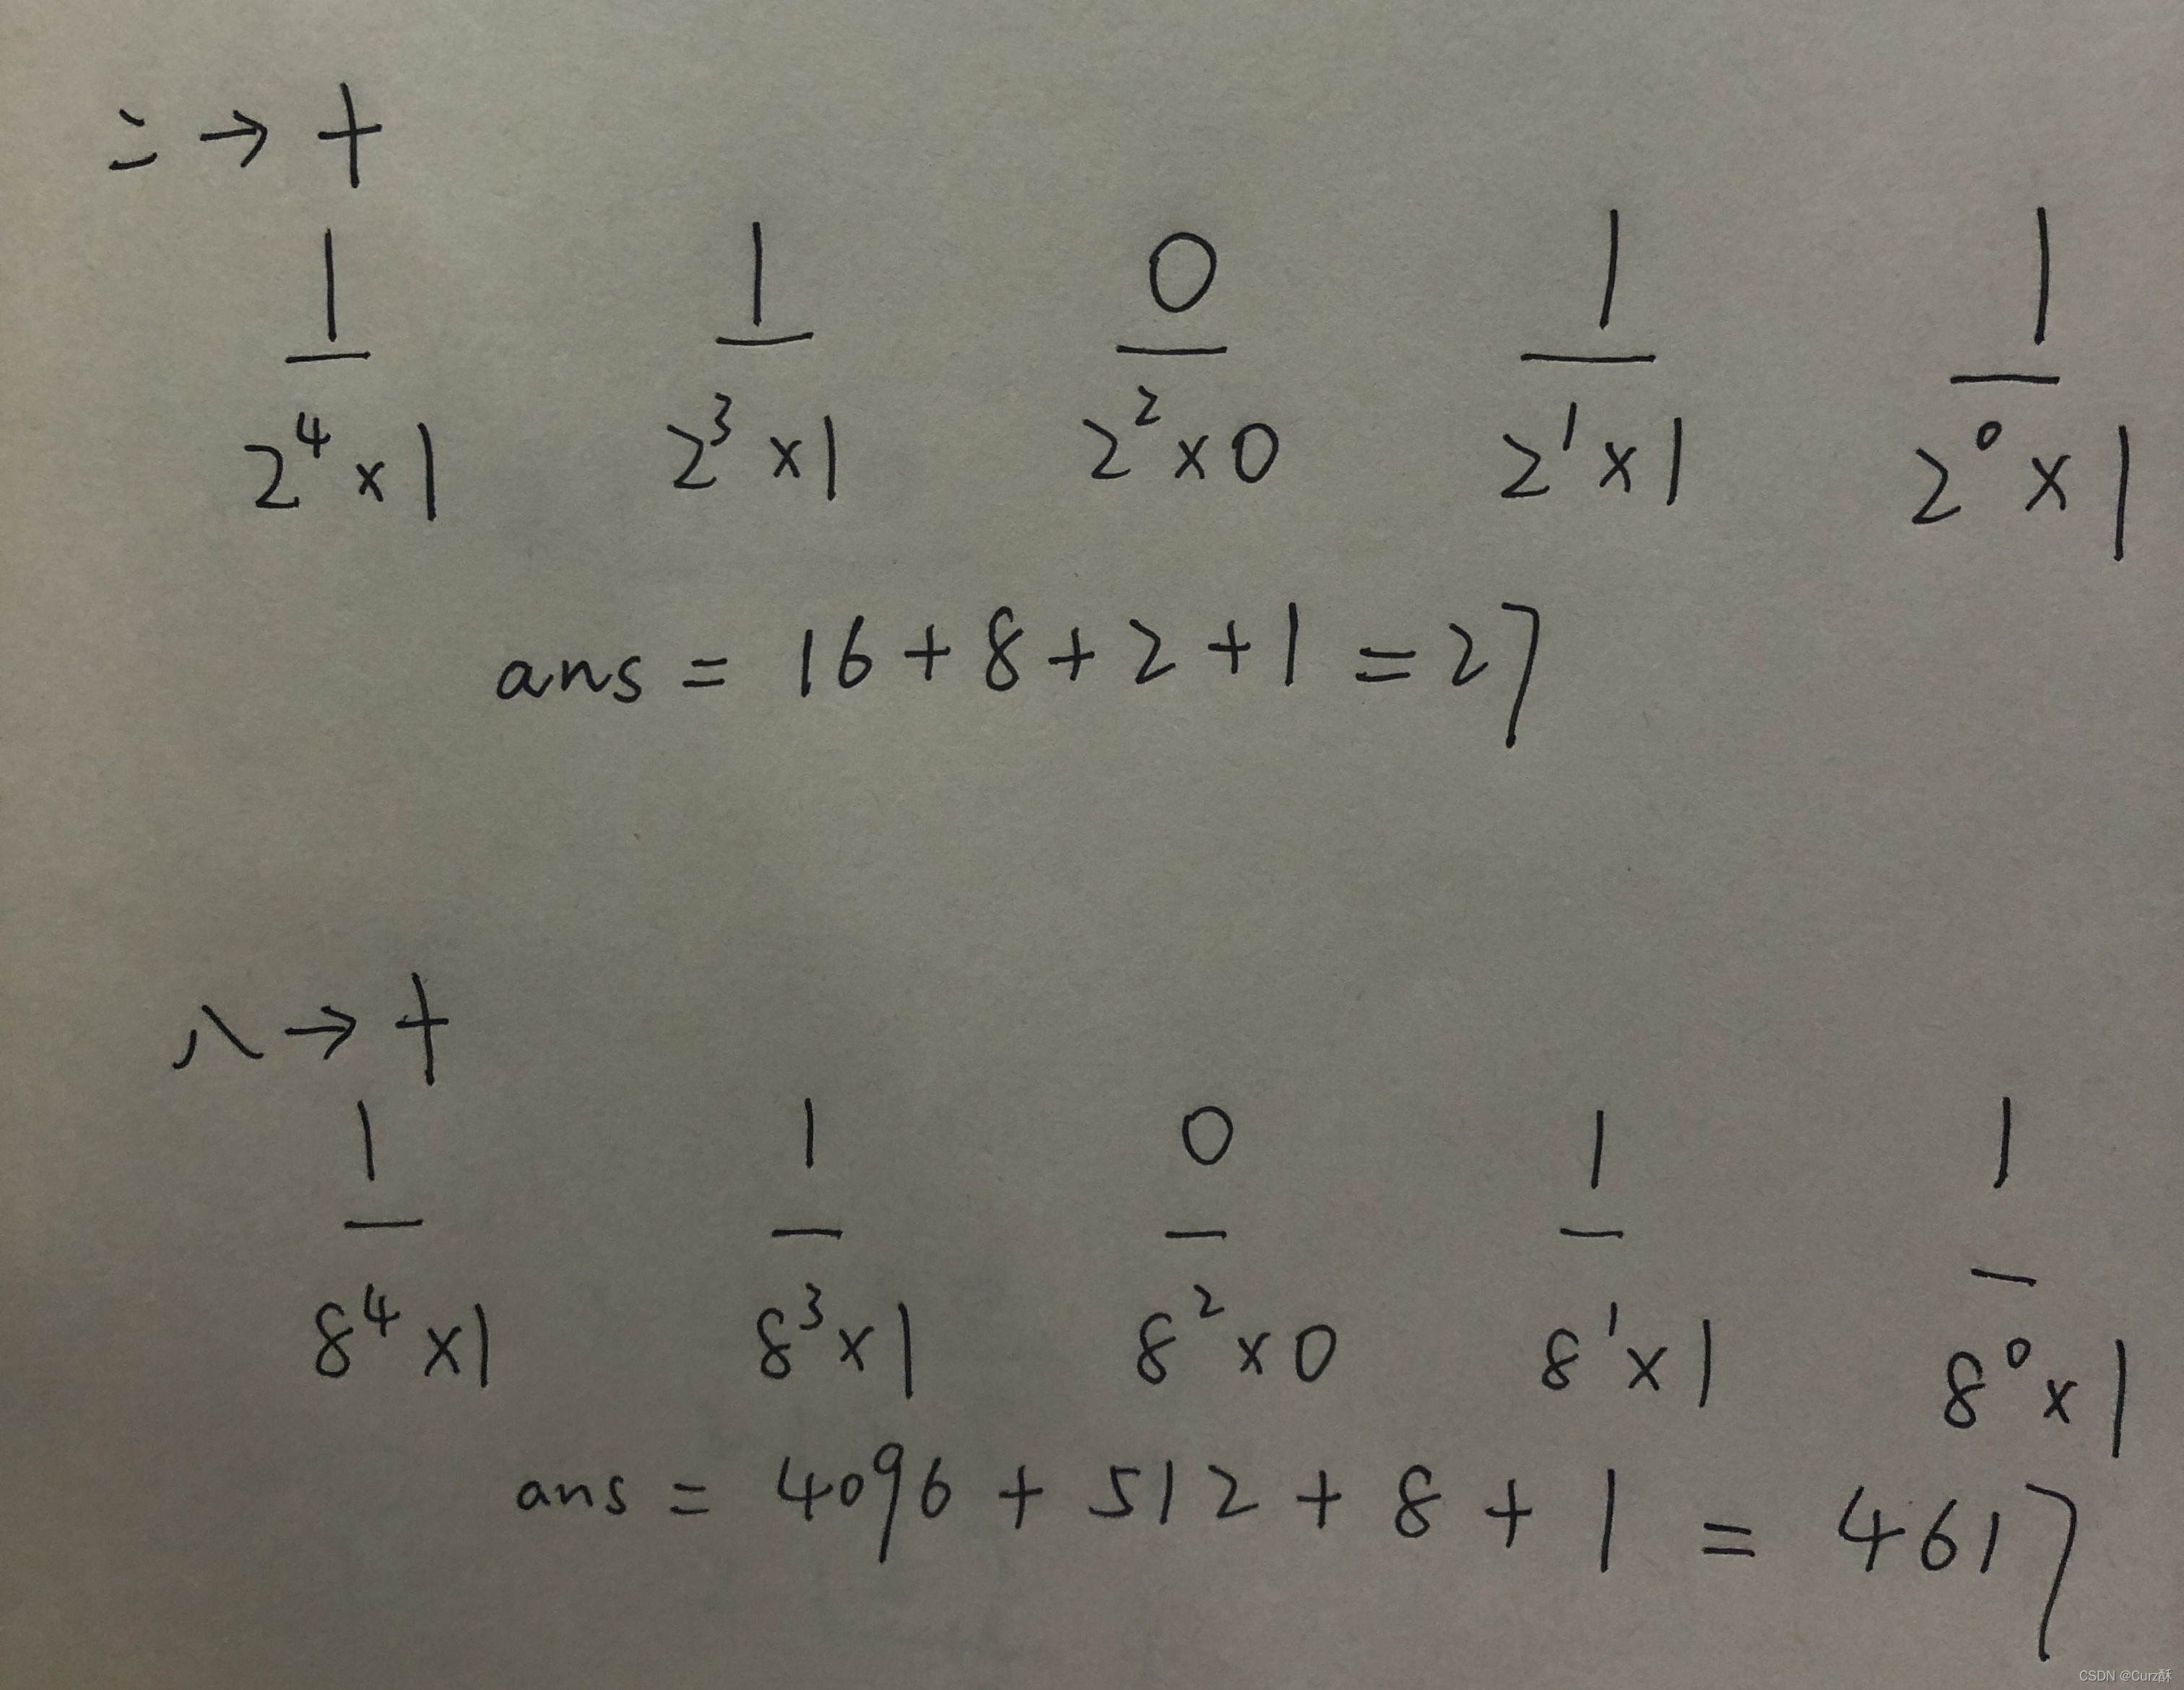 二→十
1 1 0 1 1
2⁴×1 2³×1 2²×0 2¹×1 2⁰×1
ans = 16+8+2+1=27
八→十
1 1 0 1 1
8⁴×1 8³×1 8²×0 8¹×1 8⁰×1
ans = 4096 + 512 + 8 + 1 = 4617
CSDN @Curz酥